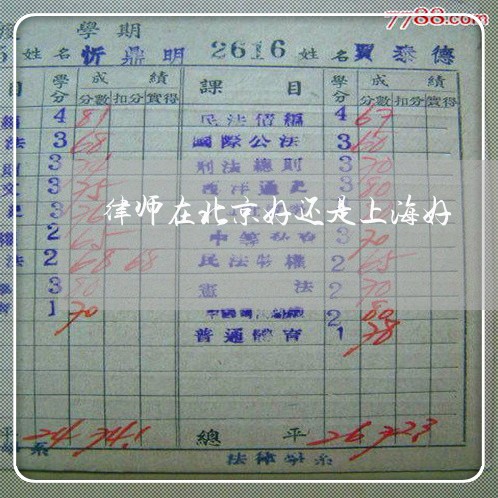 7788.com
學期
姓名 忻鼎明 2616 姓名 賈泰德
目 學分 成績 課目 學分 成績
分數 扣分 實得 分數 扣分 實得
4 81 民法債編 4 67
法 3 68 國際公法 3 60
3 刑法總則 3 70
3 75 西洋通史 3 80
律师在北京好还是上海好
2 3 70
法 2 68 68 民法物權 2 65
3 80 憲法 2 70
1 70 2 80
普通體育 1 78
平 24 74.1 總平 26 72.3
系 法律學系